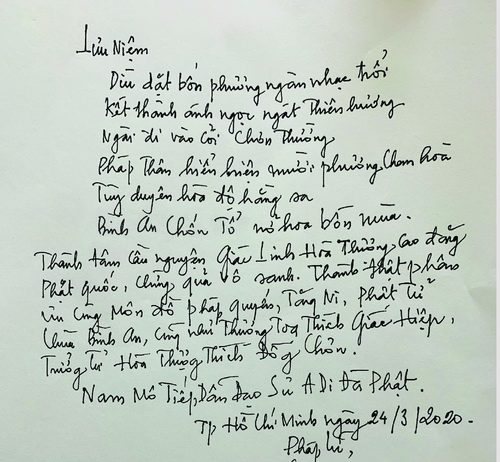 Lưu Niệm
Dìu dặt bốn phương ngàn nhạc trổi
Kết thành ánh ngọc ngát Thiên hương
Ngài đi vào cõi Chơn Thường
Pháp Thân hiển hiện mười phương Chan hoà
Tùy duyên hóa độ hằng sa
Bình An Chốn Tổ nở hoa bốn mùa.
Thành tâm Cầu nguyện Giác Linh Hòa Thượng Cao đăng
Phật quốc, Chứng quả vô sanh. Thành thật phân
ưu cùng Môn đồ pháp quyến, Tăng Ni, Phật Tử
Chùa Bình An, cũng như Thượng Tọa Thích Giác Hiệp,
Trưởng Tử Hòa Thượng Thích Đồng Chơn.
Nam Mô Tiếp Dẫn Đạo Sư A Di Đà Phật.
Tp Hồ Chí Minh ngày 24/3/2020.
Pháp lữ,